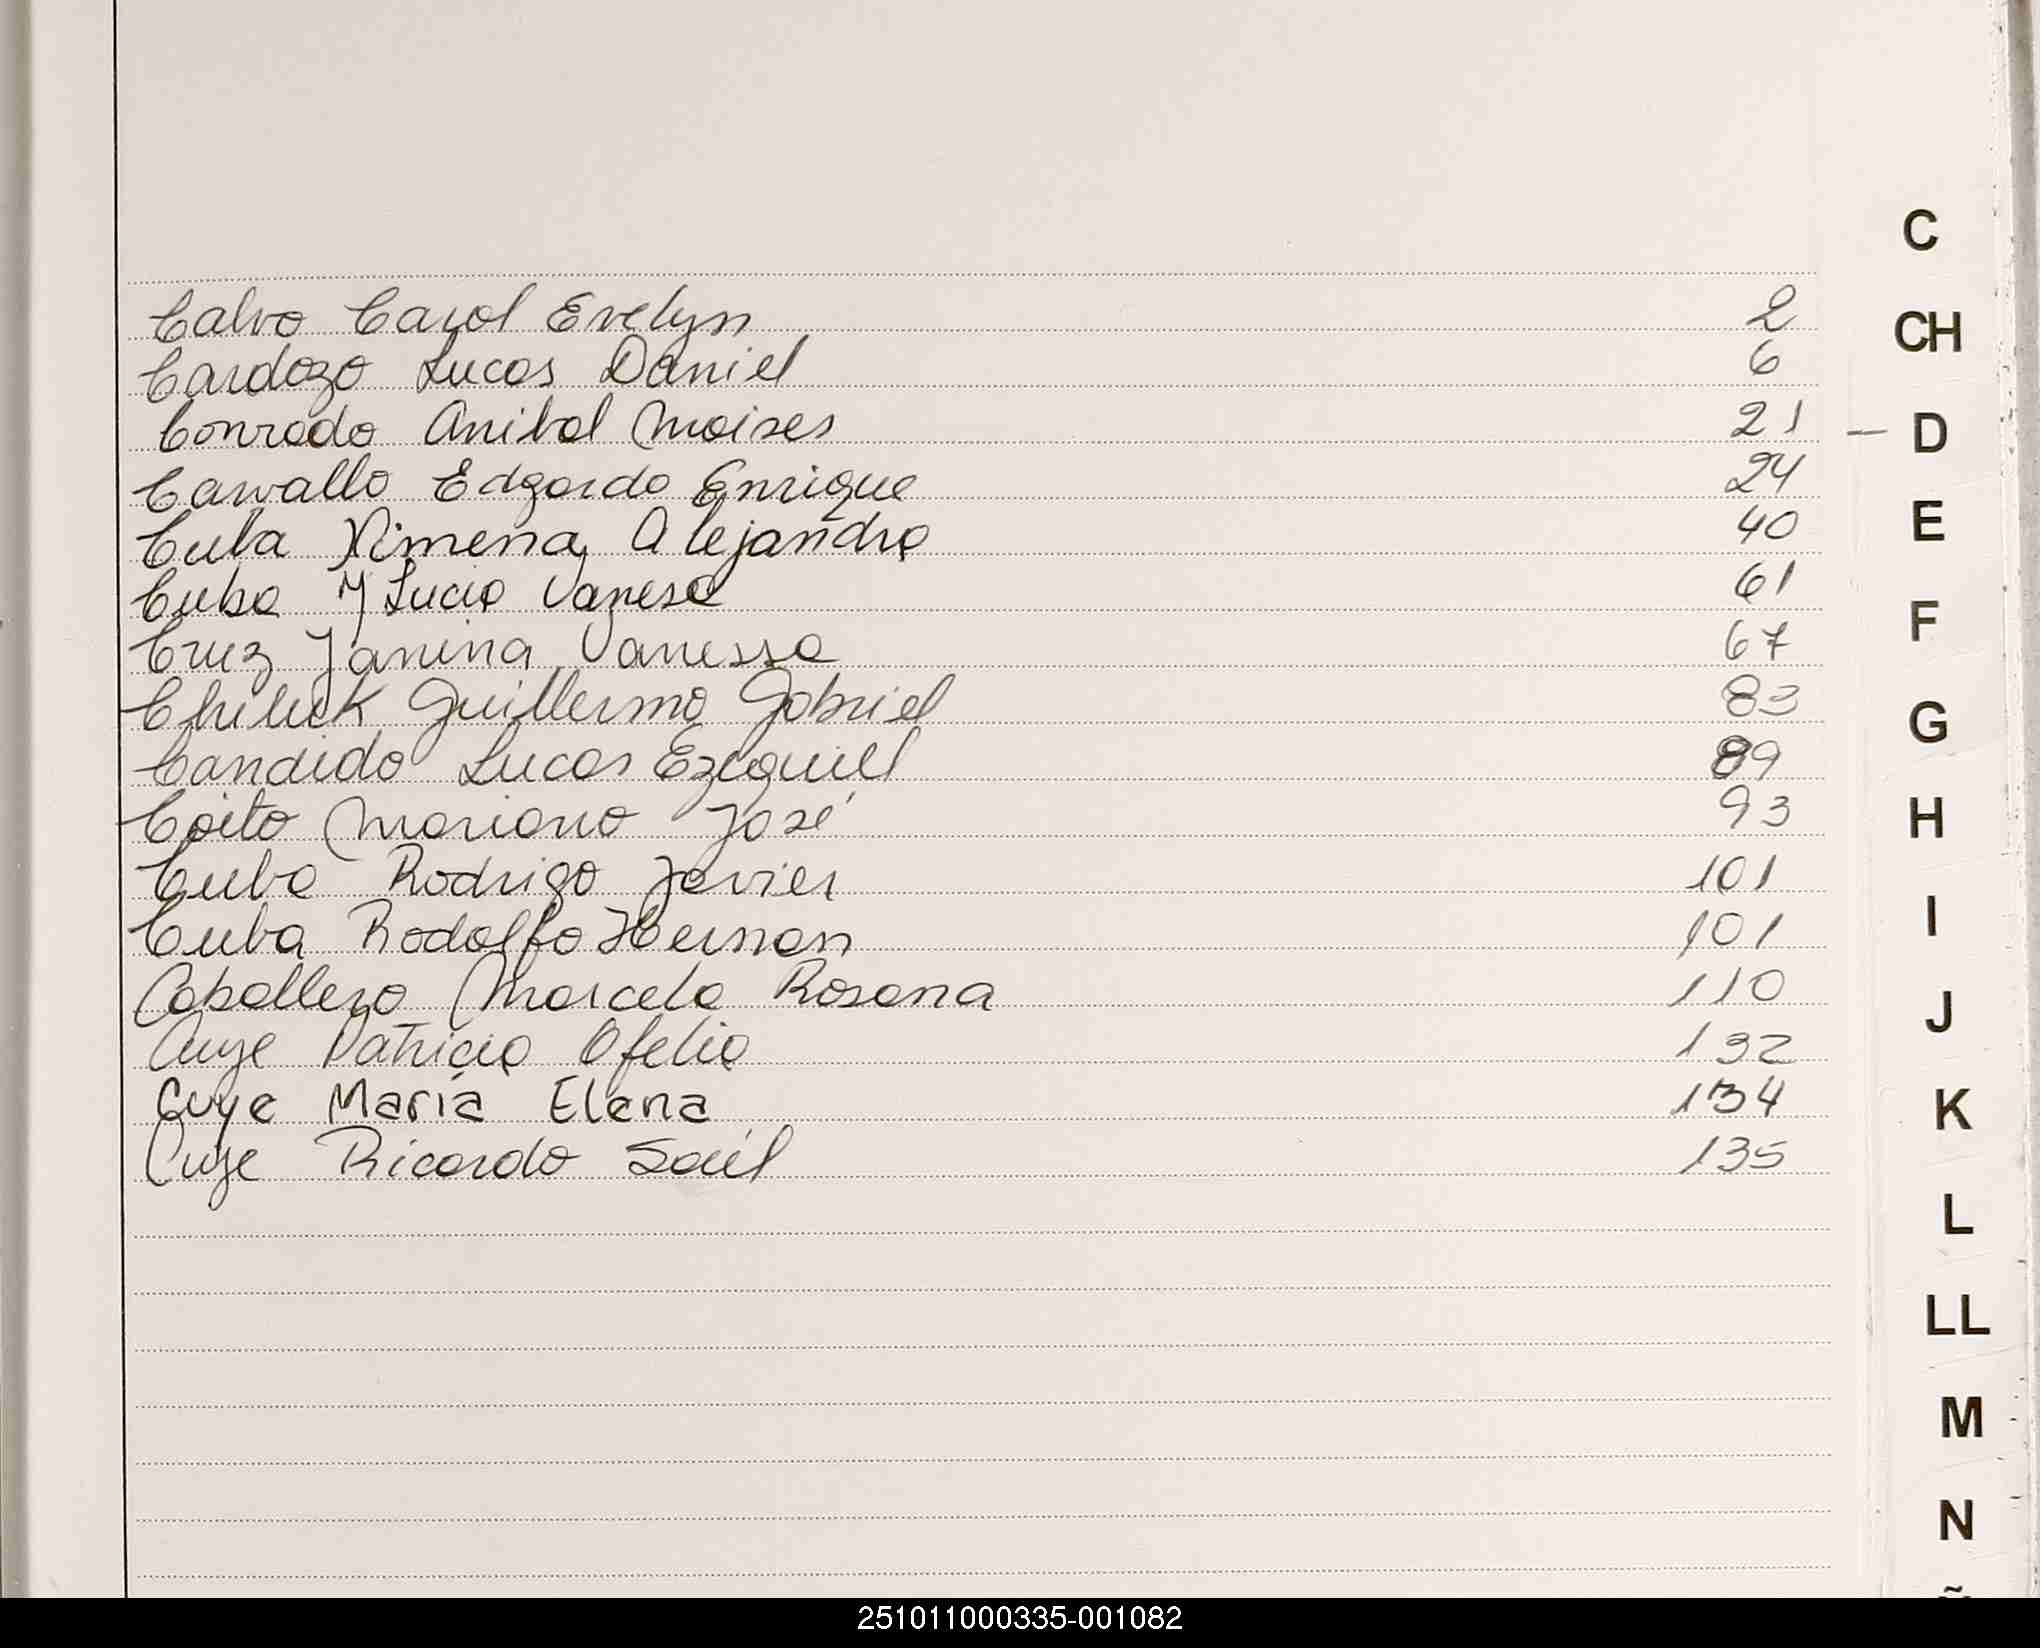 Calvo Carol Evelyn 2
Cardozo Lucas Daniel 6
Conrado Anibal Moises 21
Carvallo Edgardo Enrique 24
Cuba Ximena Alejandra 40
Cuba Y Lucia Vanesa 61
Cruz Janina Vanessa 67
Guillermo Gabriel 83
Candido Lucas Ezequiel 89
Coito Mariano José 93
Cuba Rodrigo Javier 101
Cuba Rodolfo Hernan 101
Caballero Marcela Rosana 110
Cuye Patricia Ofelia 132
Cuye María Elena 134
Cuye Ricardo Saúl 135
C
CH
D
E
F
G
H
I
J
K
L
LL
M
N
251011000335-001082